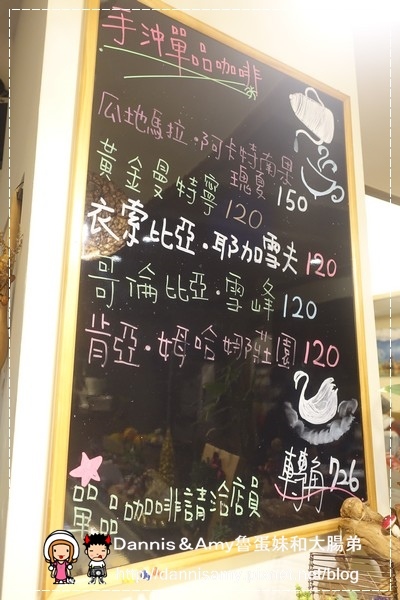 手沖單品咖啡
瓜地馬拉.阿卡特南果
瑰夏 150
黃金曼特寧 120
衣索比亞.耶加雪夫 120
哥倫比亞.雪峰 120
肯亞.姆哈娜莊園 120
轉角726
單品咖啡請洽店員
Dannis&Amy魯蛋妹和大腸弟